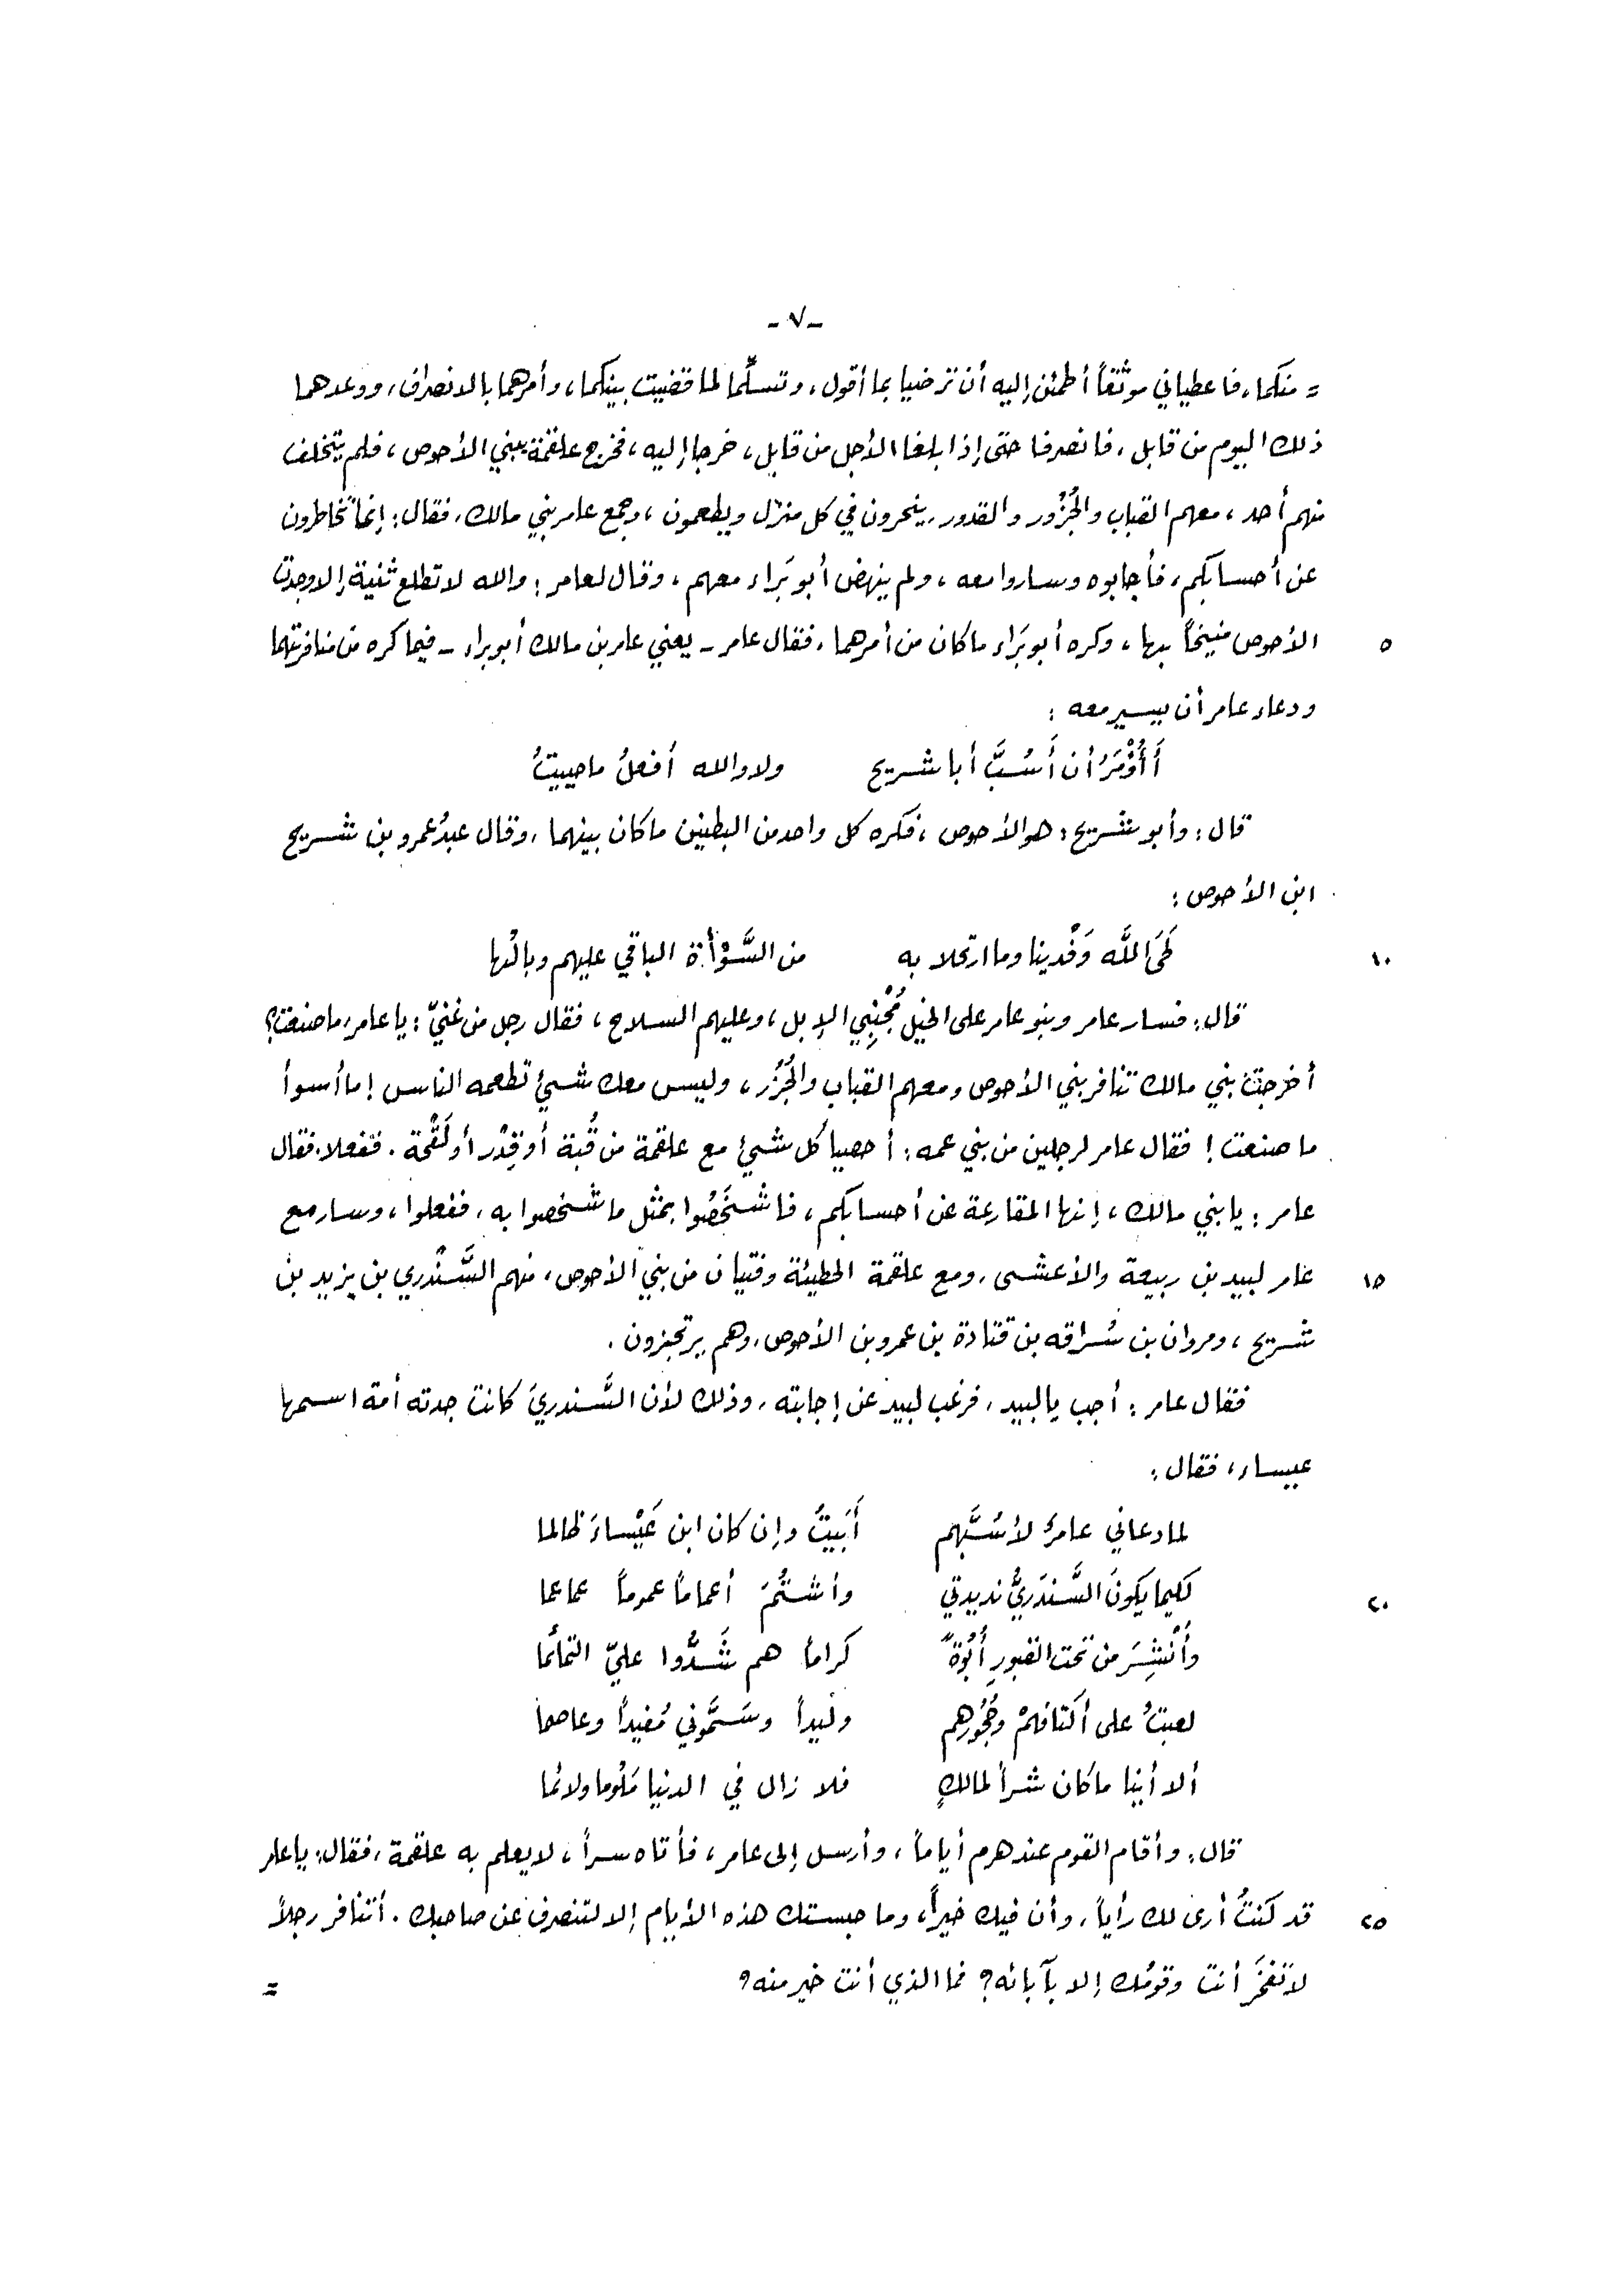 -٧-
= منكما، فاعطياني موثقاً أطمئن إليه أن ترضيا بما أقول، وتسلِّما لما قضيت بينكما، وأمرهما بالانصراف، ووعدهما
ذلك اليوم من قابل، فانصرفا حتى إذا بلغا الأجل من قابل، خرجا إليه، فخرج علقمة ببني الأحوص، فلم يتخلف
منهم أحد، معهم القباب والجُزُور والقدور، ينحرون في كل منزل ويطعمون، وجمع عامر بني مالك، فقال: إنما تخاطرون
عن أحسابكم، فأجابوه وساروا معه، ولم ينهض أبو بَراء معهم، وقال لعامر: والله لا تطلع ثنية إلا وجدت
٥ الأحوص منيخاً بها، وكره أبو بَراء ما كان من أمرهما، فقال عامر - يعني عامر بن مالك أبو براء - فيما كره من منافرتهما
ودعاء عامر أن يسير معه:
أَأُؤْمَرُ أن أَسُبَّ أبا شريح ولا والله أفعلُ ما حييتُ
قال: وأبو شريح: هو الأحوص، فكره كل واحد من البطنين ما كان بينهما، وقال عبدُ عمرو بن شريح
ابن الأحوص:
١٠ لَحَى اللَّه وَفْدينا وما ارتحلا به من السَّوْأة الباقي عليهم وبالُها
قال: فسار عامر وبنو عامر على الخيل مُجْنِبِي الإبل، وعليهم السلاح، فقال رجل من غَنيّ: يا عامر، ما صنعت؟
أخرجتَ بني مالك تنافر بني الأحوص ومعهم القباب والجُزُر، وليس معك شيئ تطعمه الناس! ما أسوأ
ما صنعت! فقال عامر لرجلين من بني عمه: أحصيا كل شيئ مع علقمة من قُبة أو قِدْر أو لَقْحة. ففعلا. فقال
عامر: يا بني مالك، إنها المقارعة عن أحسابكم، فاشْخَصُوا بمثل ما شخصوا به، ففعلوا، وسار مع
١٥ عامر لبيد بن ربيعة والأعشى، ومع علقمة الحطيئة وفتيان من بني الأحوص، منهم السَّنْدري بن يزيد بن
شريح، ومروان بن سُراقه بن قتادة بن عمرو بن الأحوص، وهم يرتجزون.
فقال عامر: أجب يا لبيد، فرغب لبيد عن إجابته، وذلك لأن السَّندريَ كانت جدته أمة اسمها
عيساء، فقال:
لما دعاني عامرٌ لأسُبَّهم أَبَيتُ وإن كان ابن عَيْساءَ ظالما
٢٠ لكيما يكونَ السَّندَريُّ نديدتي وأشتُمَ أعماماً عموماً عماعما
وأُنْشِرَ من تحت القبورِ أُبُوّةً كراماً هم شَدُّوا عليّ التمائما
لعبتُ على أكتافهمْ وحُجُورهم وليداً وسَمَّوني مُفيداً وعاصما
ألا أينا ما كان شراً لمالكٍ فلا زال في الدنيا مَلُوما ولائما
قال: وأقام القوم عند هرم أياماً، وأرسل إلى عامر، فأتاه سراً، لا يعلم به علقمة، فقال: يا عامر
٢٥ قد كنتُ أرى لك رأياً، وأن فيك خيراً، وما حبستك هذه الأيام إلا لتنصرف عن صاحبك. أتنافر رجلاً
لا تَفخَر أنت وقومُك إلا بآبائه؟ فما الذي أنت خير منه؟ =